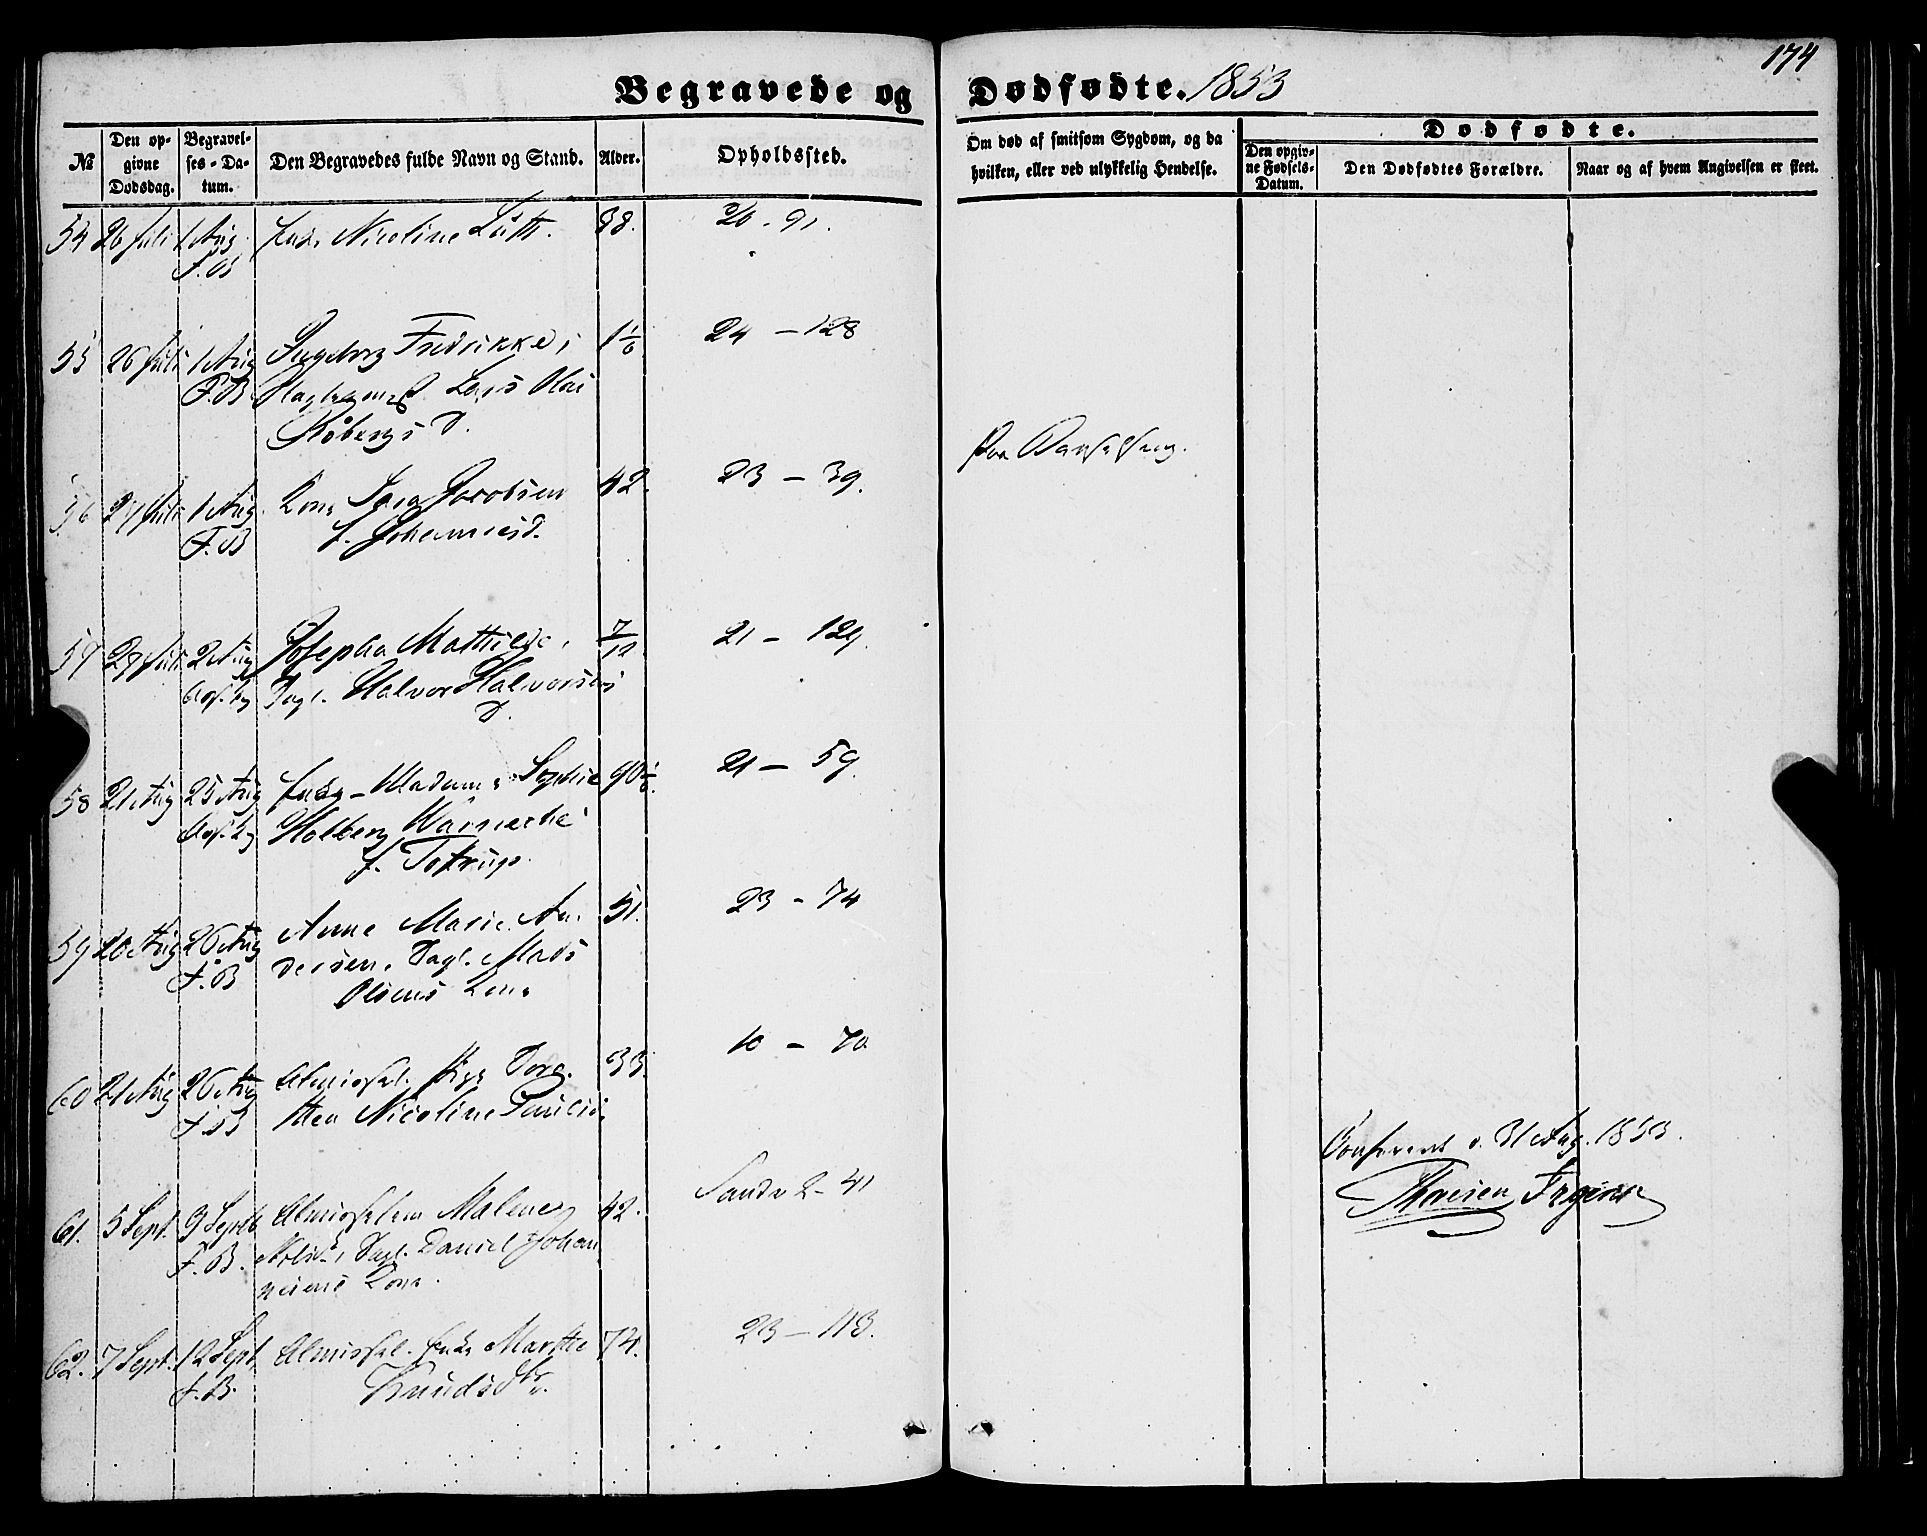 174
Begravede og Dødfødte. 1853
№
Den opgivne Dødsdag.
Begravelses-Datum.
Den Begravedes fulde Navn og Stand.
Alder.
Opholdssted.
Om død af smitsom Sygdom, og da hvilken, eller ved ulykkelig Hendelse.
Dødfødte.
Den opgivne Fødsels-Datum.
Den Dødfødtes Forældre.
Naar og af hvem Angivelsen er skeet.
54 26 Juli 1 Aug Enke Nicoline Lütt. 38. 20 - 91.
F. B
55 26 Juli 1 Aug Ingeborg Fredrikke, 1 1/6 24 - 128
F. B Lars
D.
56 27 Juli 1 Aug Kone Jacobsen 42. 23 - 39.
F. B f. Johannesd.
Paa Barselseng.
57 29 Juli 2 Aug Josepha Mathilde, 7/12 21 - 129.
Dagl. Halvor Halvorsens
D.
58 21 Aug 25 Aug Enke-Madam Sophie 90 1/6. 21 - 59.
Holberg Warnecke
f. Tostrup.
59 20 Aug 26 Aug Anne Marie An- 51. 23 - 74
F. B dersen, Dagl. Mads
Olsens Kone
60 21 Aug 26 Aug Almissel. Pige Doro- 33. 10 - 70
F. B thea Nicoline
Conferent d. 31 Aug. 1853.
61. 5 Sept. 9 Septb Almisselem Malene 42. Sandv 2 - 41
F. B. Dagl. Daniel Johan
nesens Kone.
62. 7 Sept. 12 Sept Almissel. Enke Marthe 74. 23 - 113.
F. B. Knudsdtr.